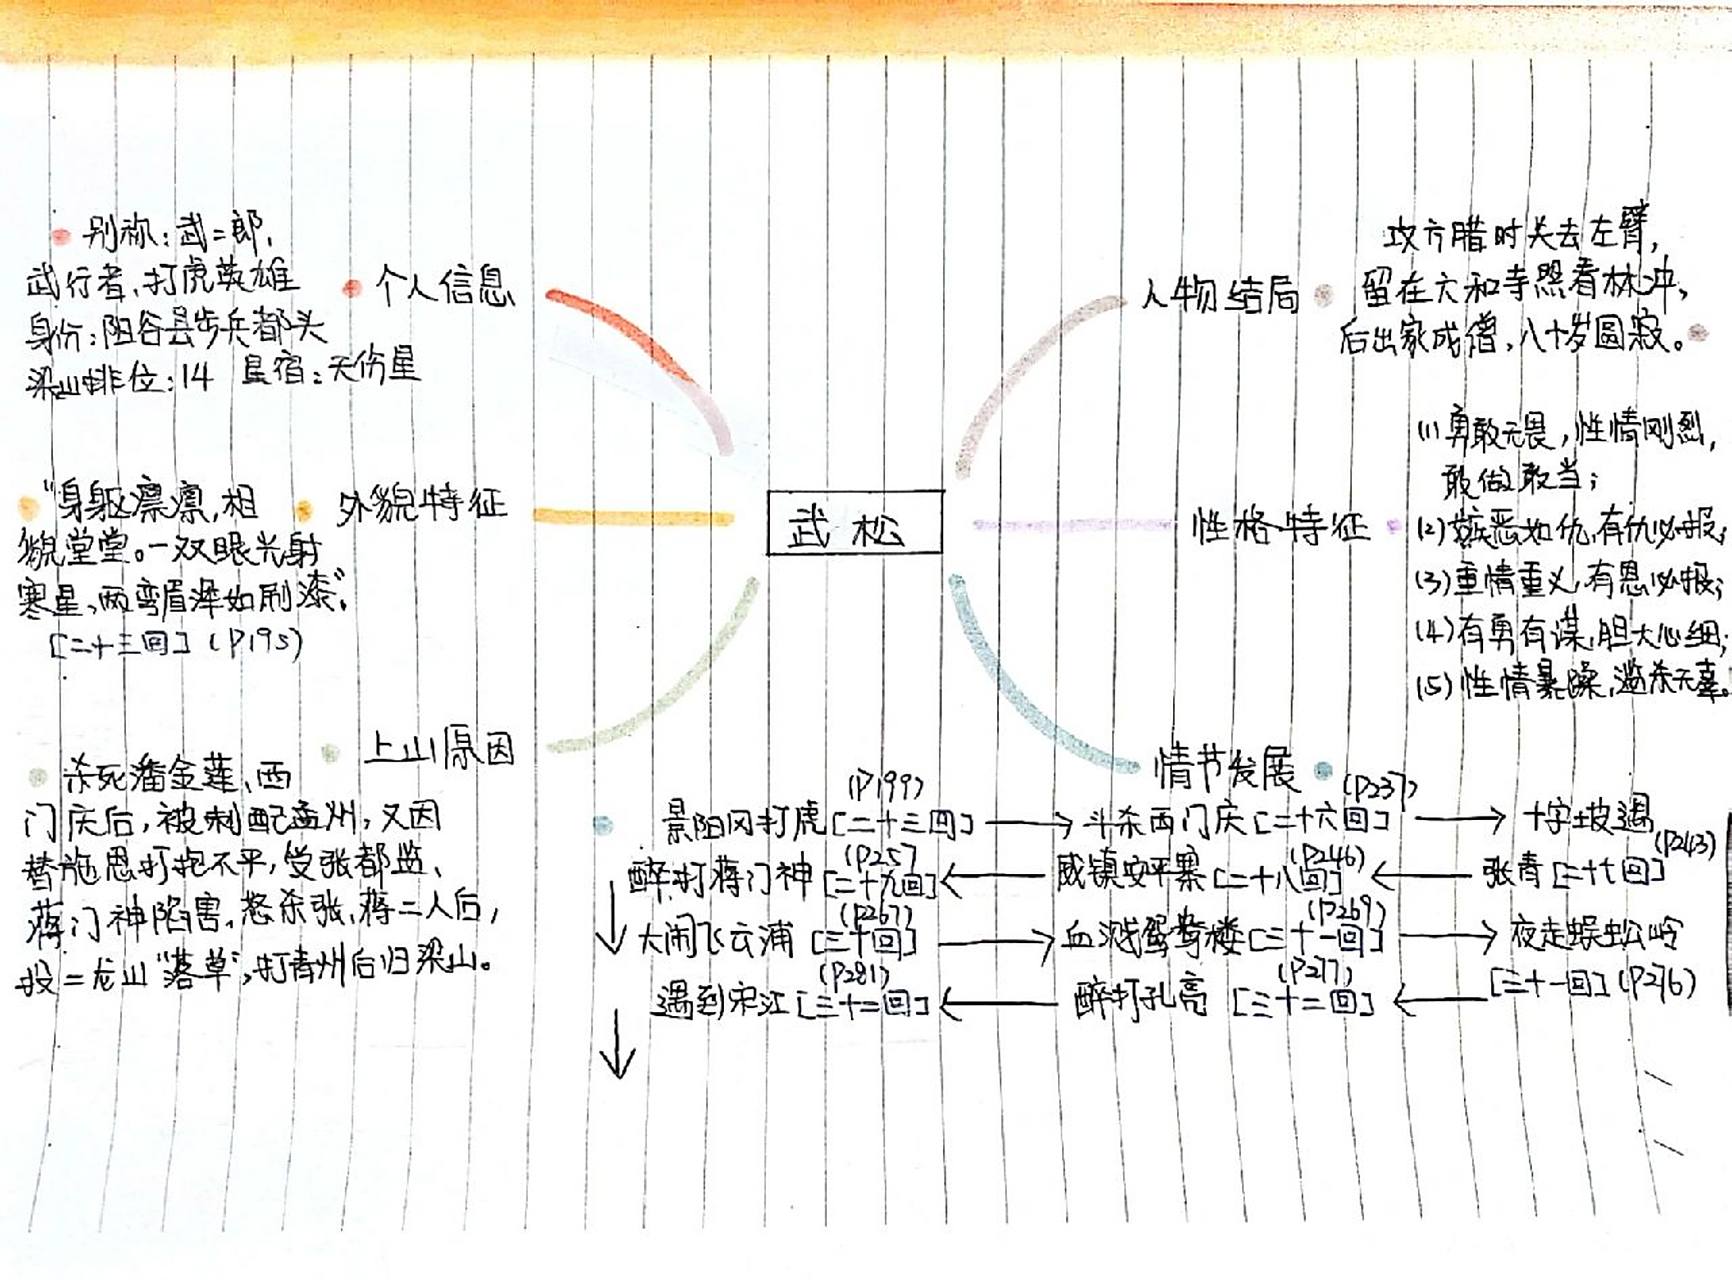 武松
个人信息
别称：武二郎，
武行者，打虎英雄
身份：阳谷县步兵都头
梁山排位：14 星宿：天伤星
外貌特征
"身躯凛凛，相
貌堂堂。一双眼光射
寒星，两弯眉浑如刷漆"。
[二十三回]（P195）
上山原因
杀死潘金莲、西
门庆后，被刺配孟州，又因
替施恩打抱不平，受张都监、
蒋门神陷害，怒杀张、蒋二人后，
投二龙山"落草"，打青州后归梁山。
人物结局
攻方腊时失去左臂，
留在六和寺照看林冲，
后出家成僧，八十岁圆寂。
性格特征
(1)勇敢无畏，性情刚烈，
敢做敢当；
(2)嫉恶如仇，有仇必报；
(3)重情重义，有恩必报；
(4)有勇有谋，胆大心细；
(5)性情暴躁，滥杀无辜。
情节发展
(P199) (P237)
景阳冈打虎[二十三回] → 斗杀西门庆[二十六回] → 十字坡遇
(P257) (P246) (P243)
醉打蒋门神[二十九回] ← 威镇安平寨[二十八回] ← 张青[二十七回]
(P267) (P269)
↓ 大闹飞云浦[三十回] → 血溅鸳鸯楼[三十一回] → 夜走蜈蚣岭
(P281) (P277)
遇到宋江[三十二回] ← 醉打孔亮[三十二回] ← [三十一回](P276)
↓